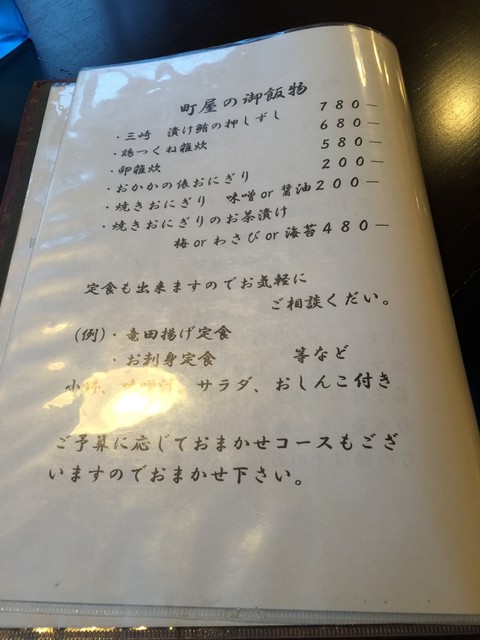 町屋の御飯物
・三崎　漬け鮪の押しずし　780−
・鶏つくね雑炊　680−
・卵雑炊　580−
・おかかの俵おにぎり　200−
・焼きおにぎり　味噌or醤油200−
・焼きおにぎりのお茶漬け
梅orわさびor海苔480−
定食も出来ますのでお気軽に
ご相談くだい。
(例)・竜田揚げ定食
・お刺身定食　等など
小鉢、味噌汁、サラダ、おしんこ付き
ご予算に応じておまかせコースもござ
いますのでおまかせ下さい。